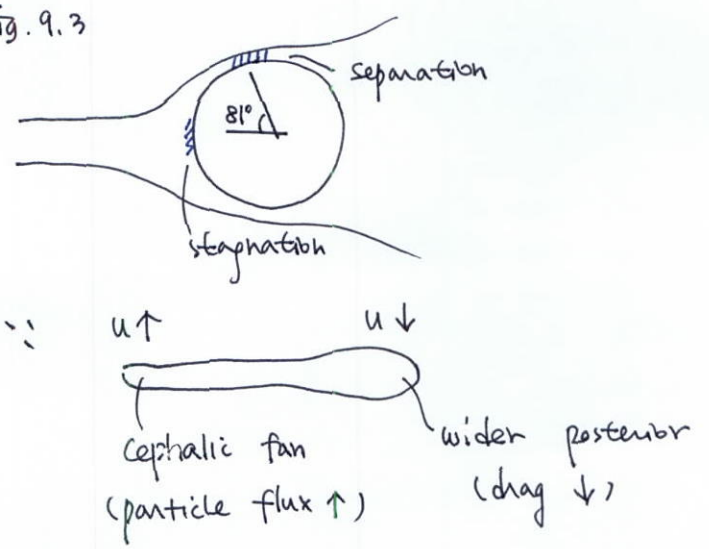 Fig. 9.3
separation
81°
stagnation
∵ u↑ u↓
cephalic fan
(particle flux ↑)
wider posterior
(drag ↓)